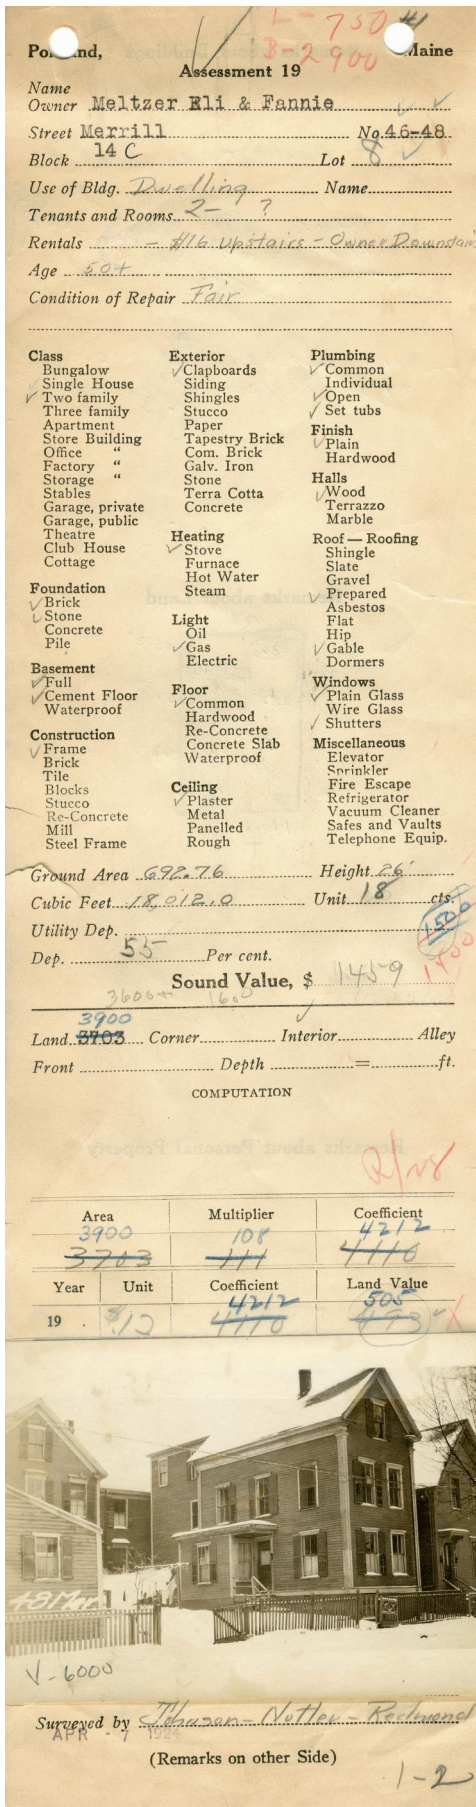 L-750 #1
B-2900
Portland, Maine
Assessment 19
Name
Owner Meltzer Eli & Fannie
Street Merrill No. 46-48
Block 14 C Lot 8
Use of Bldg. Dwelling Name
Tenants and Rooms 2- ?
Rentals - $16 Upstairs - Owner Downstairs
Age 50+
Condition of Repair Fair
Class
Bungalow
Single House
✓ Two family
Three family
Apartment
Store Building
Office "
Factory "
Storage "
Stables
Garage, private
Garage, public
Theatre
Club House
Cottage
Foundation
✓ Brick
✓ Stone
Concrete
Pile
Basement
✓ Full
✓ Cement Floor
Waterproof
Construction
✓ Frame
Brick
Tile
Blocks
Stucco
Re-Concrete
Mill
Steel Frame
Exterior
✓ Clapboards
Siding
Shingles
Stucco
Paper
Tapestry Brick
Com. Brick
Galv. Iron
Stone
Terra Cotta
Concrete
Heating
✓ Stove
Furnace
Hot Water
Steam
Light
Oil
✓ Gas
Electric
Floor
✓ Common
Hardwood
Re-Concrete
Concrete Slab
Waterproof
Ceiling
✓ Plaster
Metal
Panelled
Rough
Plumbing
✓ Common
Individual
✓ Open
✓ Set tubs
Finish
✓ Plain
Hardwood
Halls
✓ Wood
Terrazzo
Marble
Roof — Roofing
Shingle
Slate
Gravel
✓ Prepared
Asbestos
Flat
Hip
✓ Gable
Dormers
Windows
✓ Plain Glass
Wire Glass
✓ Shutters
Miscellaneous
Elevator
Sprinkler
Fire Escape
Refrigerator
Vacuum Cleaner
Safes and Vaults
Telephone Equip.
Ground Area 692.76 Height 26'
Cubic Feet 18,012.0 Unit 18 cts.
Utility Dep. 1500
Dep. 55 Per cent. 1400
Sound Value, $ 1459
3600+ 1600
3900
Land 3703 Corner Interior ✓ Alley
Front Depth = ft.
COMPUTATION
Area Multiplier Coefficient
3900 108 4212
3703 111 4110
Year Unit Coefficient Land Value
4212 505
19 . .12 4110 493
48 Mer
V-6000
Surveyed by Johnson - Nutter - Redmond
APR - 7 1924
(Remarks on other Side)
1-2